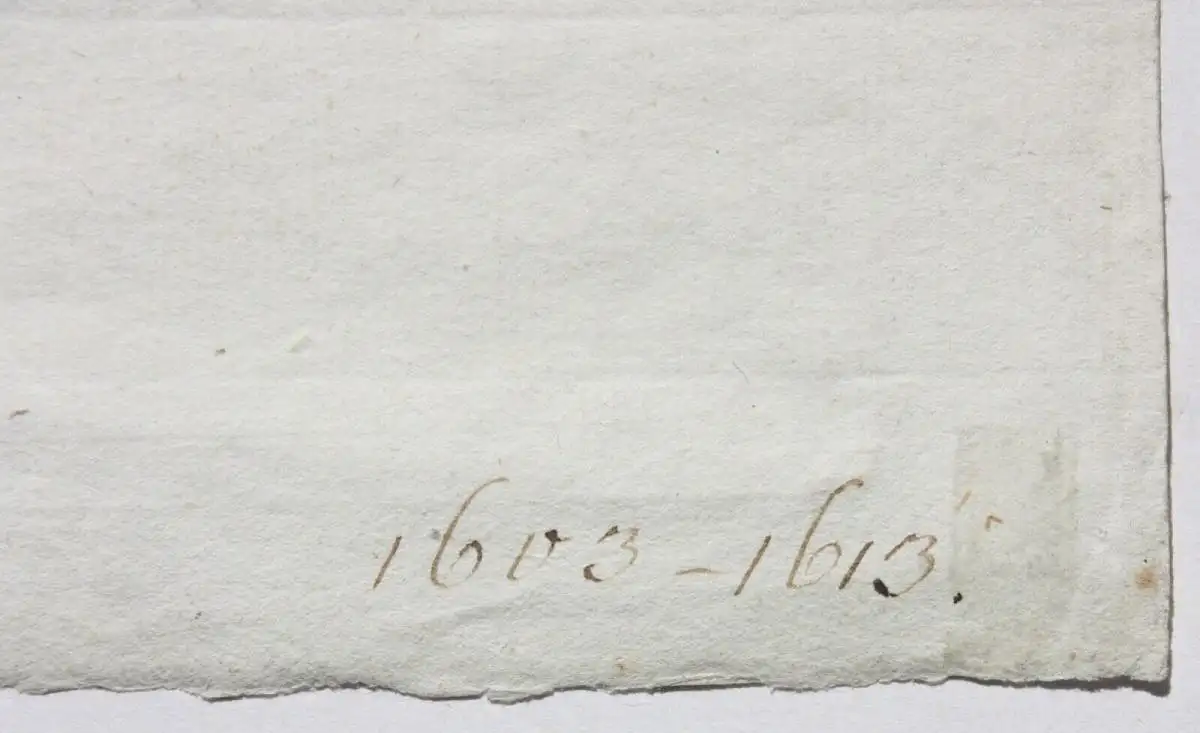 1603 - 1613.